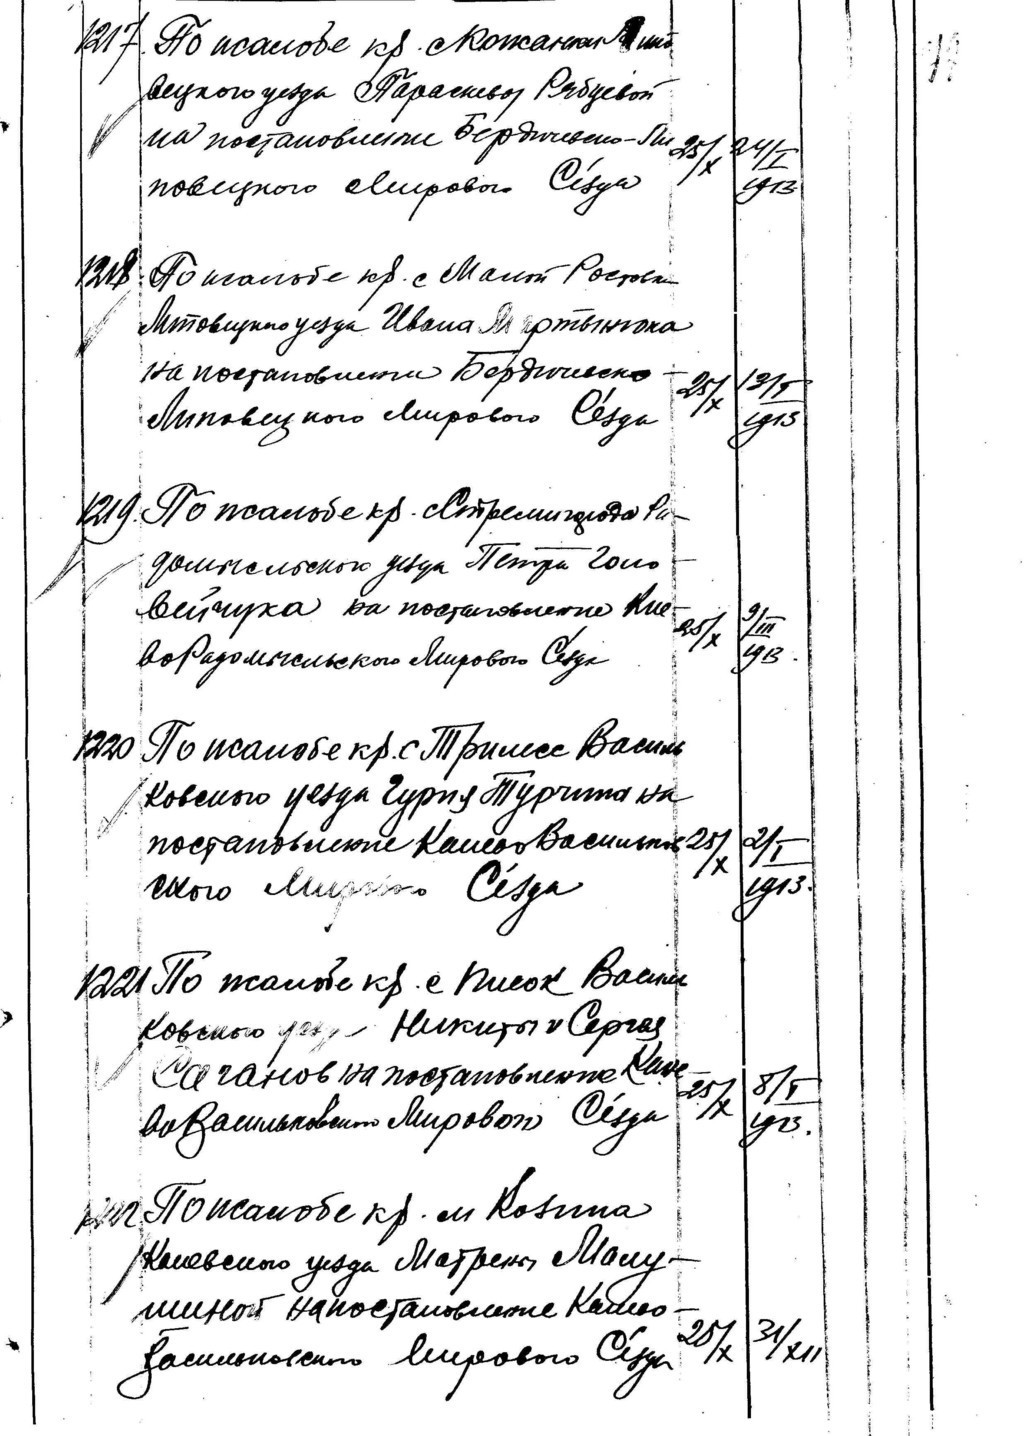 1217 По жалобе кр. с Кожанки Липо
вецкого уезда Параскевы Рябцевой
на постановление Бердичевско-Ли 25/X 24/I
повецкого Мирового Сезда 1913
1218 По жалобе кр. с Малой Ростовки
Липовецкого уезда Ивана Мартынюка
на постановление Бердичевско- 25/X 12/I
Липовецкого Мирового Сезда 1913
1219. По жалобе кр. с Стремигорода Ра-
домысльского уезда Петра Голо-
вейчука на постановление Кие- 25/X 9/III
воРадомысльского Мирового Сезда 1913.
1220 По жалобе кр. с Трилесс Василь
ковского уезда Гурия Турчина на
постановление КаневоВасильков 25/X 2/I
ского Мирового Сезда 1913.
1221 По жалобе кр. с Писок Василь
ковского Никиты и Сергея
на постановление Кане- 25/X 8/I
воВасильковского Мирового Сезда 1913.
1222 По жалобе кр. м Козина
Каневского уезда Матрены Малу-
шиной на постановление Канево- 25/X 31/XII
Васильковского Мирового Сезда